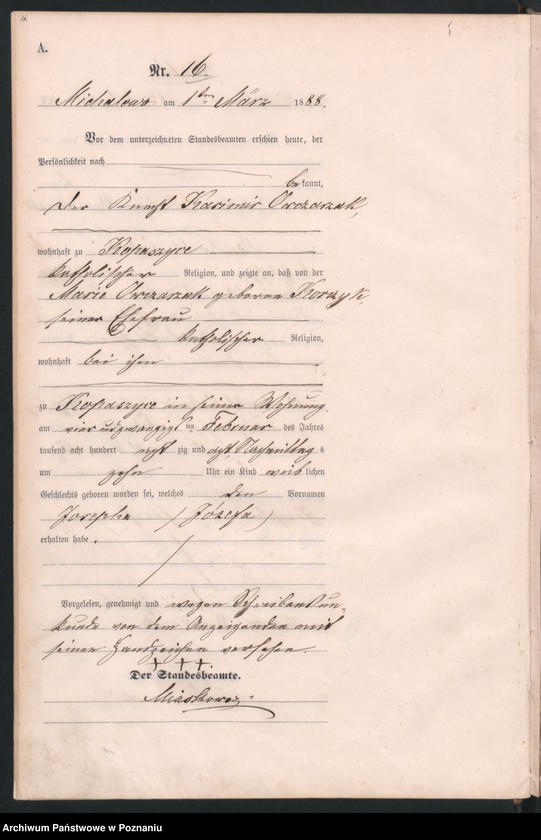 A.
Nr. 16.
Michalowo am 1ten März 1888.
Vor dem unterzeichneten Standesbeamten erschien heute, der
Persönlichkeit nach
bekannt,
der Knecht Kasimir Owczarzak,
wohnhaft zu Kopaszyce
katholischer Religion, und zeigte an, daß von der
Marie Owczarzak geborene
seiner Ehefrau
katholischer Religion,
wohnhaft bei ihm
zu Kopaszyce in seiner Wohnung
am vier und zwanzigsten Februar des Jahres
tausend acht hundert acht zig und acht, Nachmittags
um zehn Uhr ein Kind weiblichen
Geschlechts geboren worden sei, welches den Vornamen
Josepha (Józefa)
erhalten habe.
Vorgelesen, genehmigt und wegen Schreibensun-
kunde von dem Anzeigenden mit
seinen Handzeichen versehen.
+++
Der Standesbeamte.
Archiwum Państwowe w Poznaniu